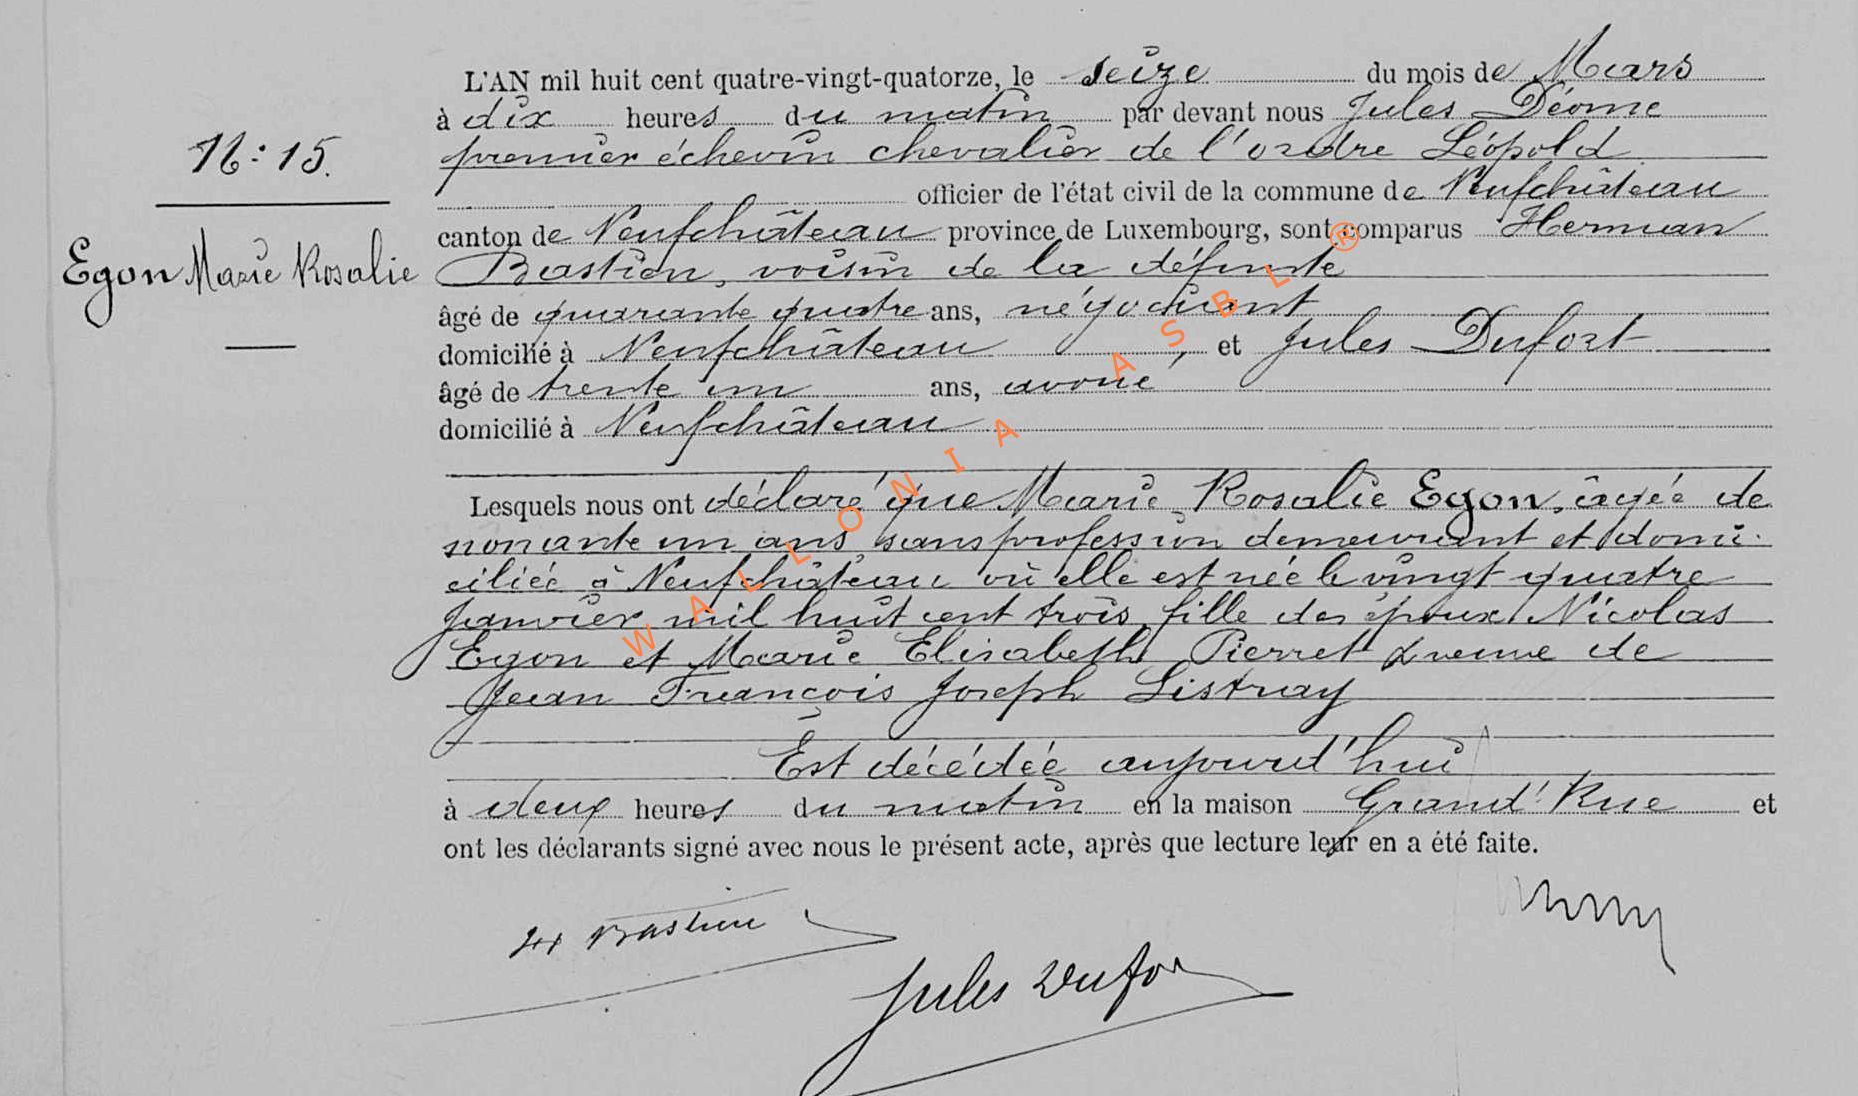 L'AN mil huit cent quatre-vingt-quatorze, le seize du mois de Mars
à dix heures du matin par devant nous Jules Déome
premier échevin chevalier de l'ordre Léopold
officier de l'état civil de la commune de Neufchâteau
canton de Neufchâteau province de Luxembourg, sont comparus Herman
Bastien, voisin de la défunte
âgé de quarante quatre ans, négociant
domicilié à Neufchâteau, et Jules Dufort
âgé de trente un ans, avoué
domicilié à Neufchâteau
N: 15.
Egon Marie Rosalie
Lesquels nous ont déclaré que Marie Rosalie Egon, âgée de
nonante un ans, sans profession demeurant et domi-
ciliée à Neufchâteau où elle est née le vingt quatre
Janvier mil huit cent trois, fille des époux Nicolas
Egon et Marie Elisabeth Pierret & veuve de
Jean François Joseph Listray
Est décédée aujourd'hui
à deux heures du matin en la maison Grand' Rue et
ont les déclarants signé avec nous le présent acte, après que lecture leur en a été faite.
H Bastien
Jules Dufor
WALLONIA ASBL ®